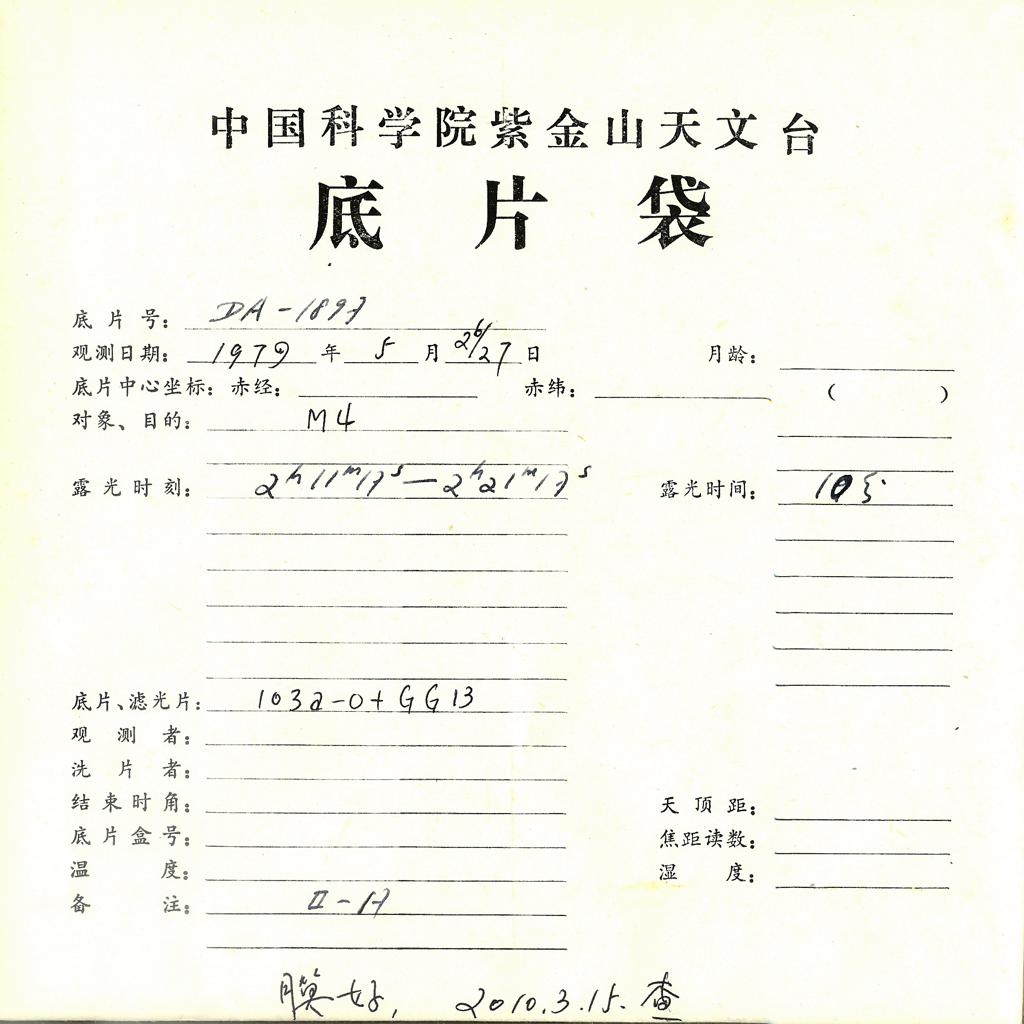 中国科学院紫金山天文台
底片袋
底片号: DA-1897
观测日期: 1979年5月26/27日 月龄:
底片中心坐标: 赤经: 赤纬: ( )
对象、目的: M4
露光时刻: 2h11m17s—2h21m17s 露光时间: 10分
底片、滤光片: 103a-O+GG13
观测者:
洗片者:
结束时角: 天顶距:
底片盒号: 焦距读数:
温度: 湿度:
备注: II-17
膜好, 2010.3.15.查